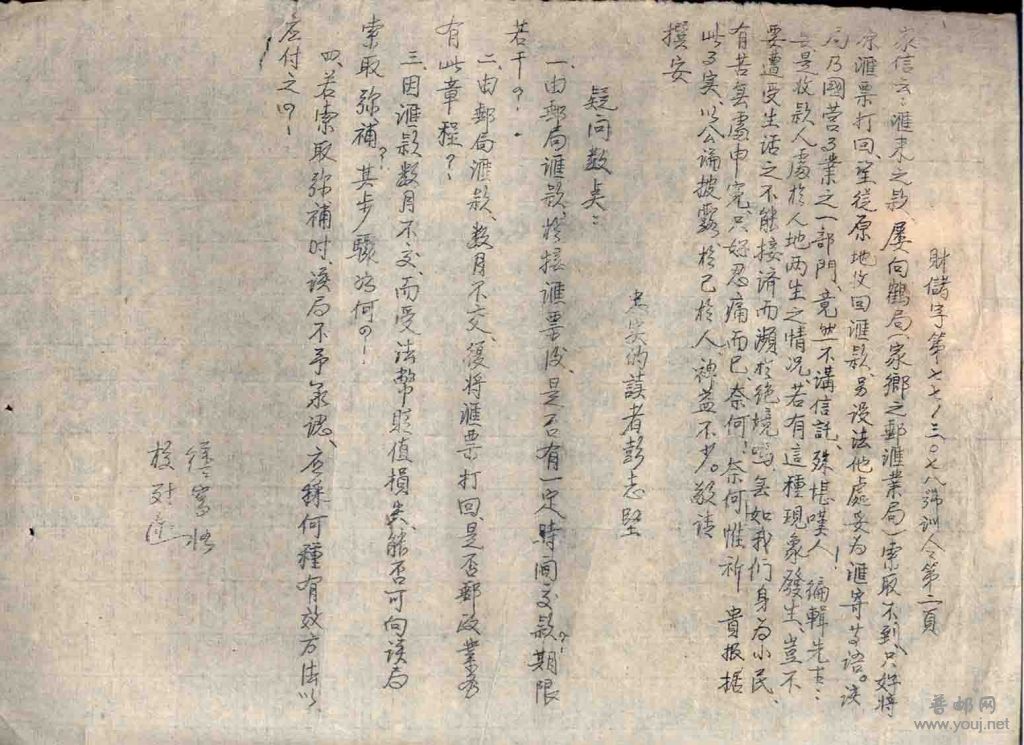 財儲字第七七/三〇七八號訓令第二頁
家信云：滙來之款、屢向鶴局（家鄉之郵滙業局）索取不到、只好將
原滙票打回、望從原地收回滙款、另設法他處妥為滙寄等語。該
局乃國营事業之一部門、竟然不講信託、殊堪嘆人！編輯先生：
若是收款人處於人地兩生之情況、若有這種現象發生、豈不
要遭受生活之不能接済而瀕於絕境嗎、無如我們身為小民、
有苦無處申冤、只好忍痛而已、奈何、奈何、惟祈 貴报據
此事实、以公論披露、於己於人、裨益不少。敬請
撰安
忠实的讀者彭志堅
疑问数点：
一、由郵局滙款、於接滙票後、是否有一定時间交款？期限
若干？
二、由郵局滙款、数月不交、復將滙票打回、是否郵政業务
有此章程？
三、因滙款数月不交、而受法幣貶值損失、能否可向该局
索取弥補？其步驟为何？
四、若索取弥補时、该局不予承認、应採何種有效方法以
应付之？
校对
普邮网
www.youj.net